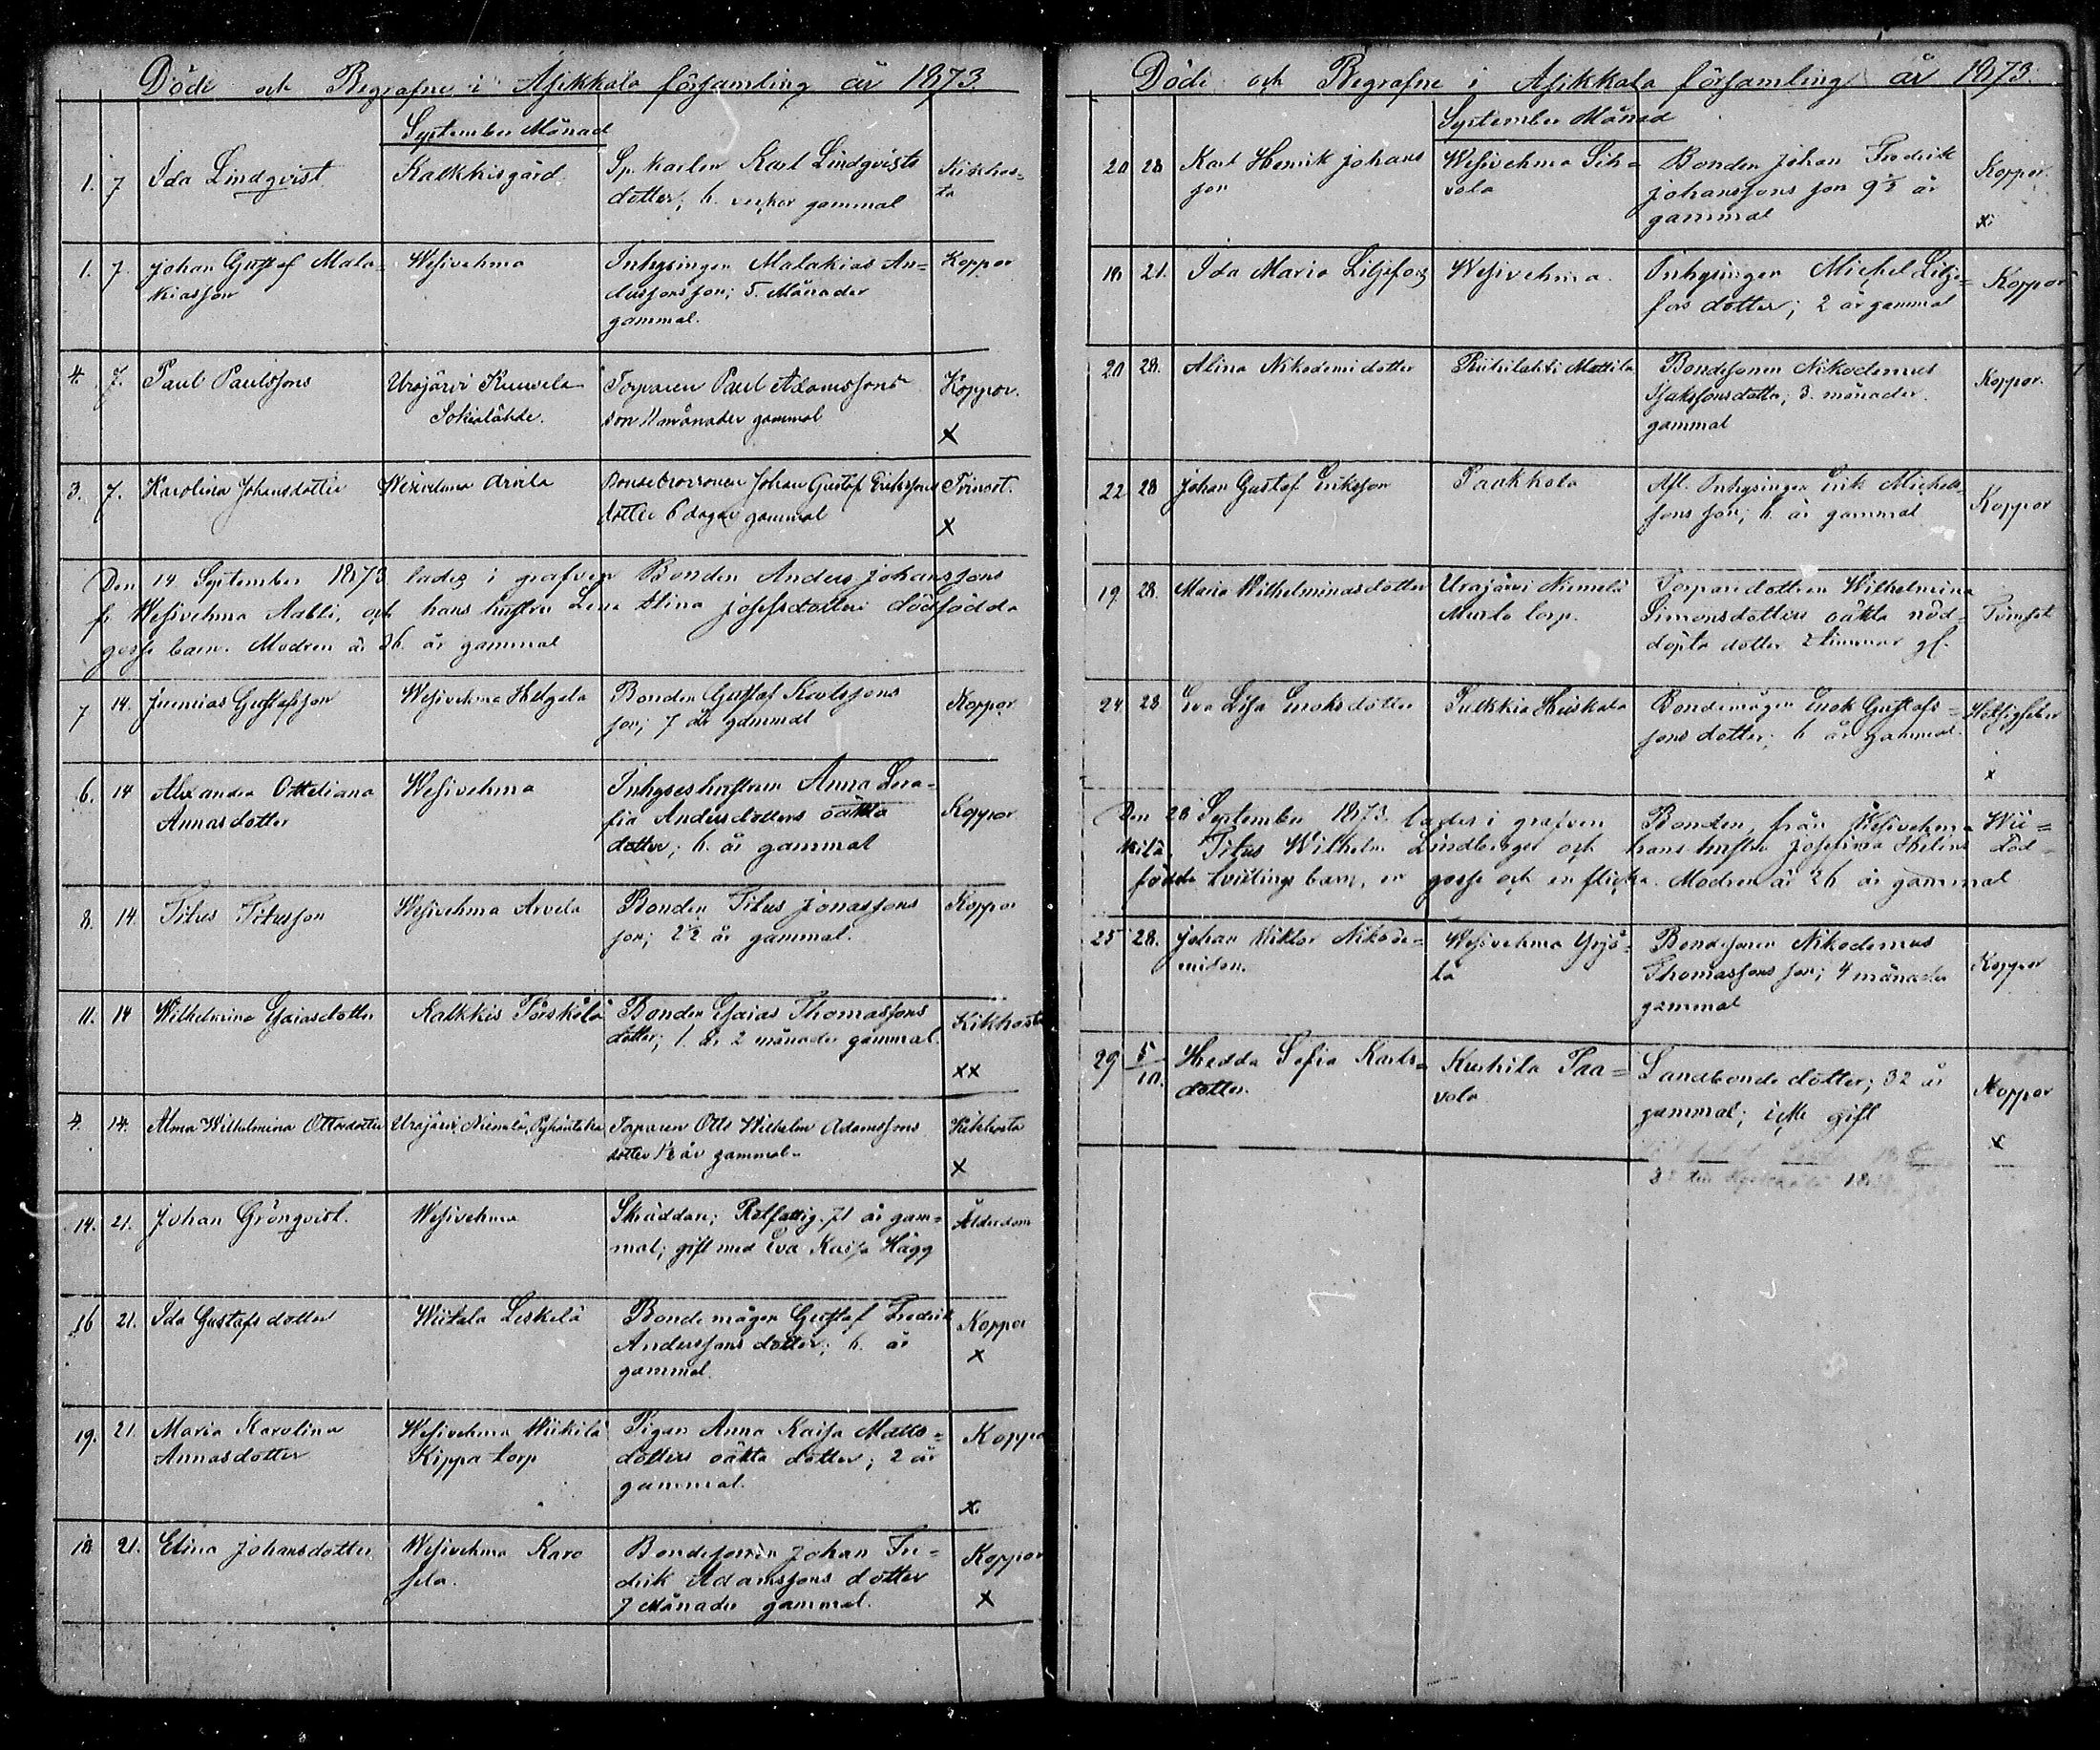 Döde och Begrafne i Asikkala församling år 1873.
September Månad
1. 7 Ida Lindqvist Kalkkisgård Sp. karlen Karl Lindqvists Kikhos=
dotter; 6. veckor gammal ta
1. 7. Johan Gustaf Mala= Wesivehma Inhysingen Malakias An= Koppor
kiasson derssons son; 5. Månader
gammal.
4. 7. Paul Paulssons Urajärvi Kuusela Torparen Paul Adamssons Koppor.
son 11 månader gammal
x
3. 7. Karolina Johansdotter Wesivehma Arvela Johan Gustaf Erikssons
dotter 6 dagar gammal
x
Den 14 September 1873 lades i grafven Bonden Anders Johanssons
fr. Wesivehma Aabli, och hans hustru Lena Alina Josefsdotters dödfödda
gosse barn. Modren är 36. år gammal
7 14. Jeremias Gustafsson Wesivehma Helgala Bonden Gustaf Karlssons Koppor
son; 7 år gammal
6. 14 Alexandra Otteliana Wesivehma Inhyseshustrun Anna Sera=
Annasdotter fia Andersdotters oäkta Koppor
dotter; 6. år gammal
8. 14. Titus Titusson Wesivehma Arvela Bonden Titus Jonassons Koppor
son; 2 1/2 år gammal.
11. 14 Wilhelmina Esaiasdotter Kalkkis Törskölä Bonden Esaias Thomassons Kikhosta
dotter; 1. år 2 månader gammal.
xx
4. 14. Alma Wilhelmina Ottosdotter Urajärvi, Niemelä, Torparen Otto Wilhelm Adamssons Kikhosta
dotter 1/2 år gammal.
x
14. 21. Johan Grönqvist. Wesivehma Skräddare; Rotfattig. 71 år gam= Ålderdom
mal; gift med Eva Kaisa Hägg
16 21. Ida Gustafsdotter Wiitala Leskelä Bondemågen Gustaf Fredrik Koppor
Anderssons dotter; 6. år x
gammal.
19. 21. Maria Karolina Wesivehma Wiikilä Pigan Anna Kaisa Matts= Koppor
Annasdotter Kippa torp dotters oäkta dotter; 2 år
gammal.
x
18 21. Elina Johansdotter Wesivehma Karo Bondesonen Johan Fre= Koppor
sela. drik Adamssons dotter
7 Månader gammal. x
Döde och Begrafne i Asikkala församling år 1873.
September Månad
20 28 Karl Henrik Johans Wesivehma Sih= Bonden Johan Fredrik Koppor.
son vola Johanssons son 9 1/2 år
gammal x
18 21. Ida Maria Liljefors Wesivehma. Inhysingen Michel Lilje= Koppor
fors dotter; 2 år gammal
20 28. Alina Nikodemidotter Riihilahti Mattila Bondesonen Nikodemus Koppor.
Isakssons dotter; 3. månader
gammal
22 28 Johan Gustaf Eriksson Paakkola Afl. Inhysingen Erik Michels= Koppor
sons son; 6. år gammal
19. 28. Maria Wilhelminasdotter Urajärvi Niemelä Torparedottren Wilhelmina
Murto torp. Simonsdotters oäkta nöd=
döpta dotter 2 timmar gl.
24 28 Eva Lisa Enoksdotter Pulkkia Heiskala Bondemågen Enok Gustafs=
sons dotter; 6 år gammal.
x
Den 28 September 1873. lades i grafven Bonden från Wesivehma Wii=
kilä. Titus Wilhelm Lindberger och hans hustru Josefina Helins död=
födda tvillinge barn, en gosse och en flicka. Modren är 26 år gammal
25 28. Johan Wiktor Nikode= Wesivehma Yrjö= Bondesonen Nikodemus
mison. lä Thomassons son; 4 månader Koppor
gammal
29 5/10. Hedda Sofia Karls= Kurhila Paa= Landbonde dotter; 32 år Koppor
dotter. vola gammal; icke gift
x